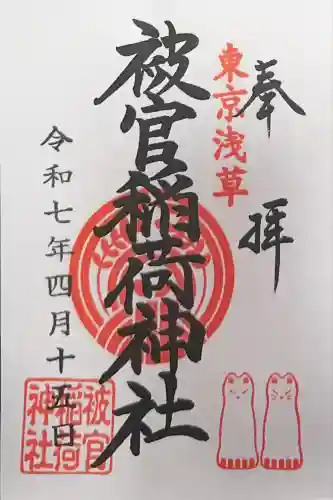 奉拝
東京浅草
被官稲荷神社
令和七年四月十五日
被官
稲荷
神社